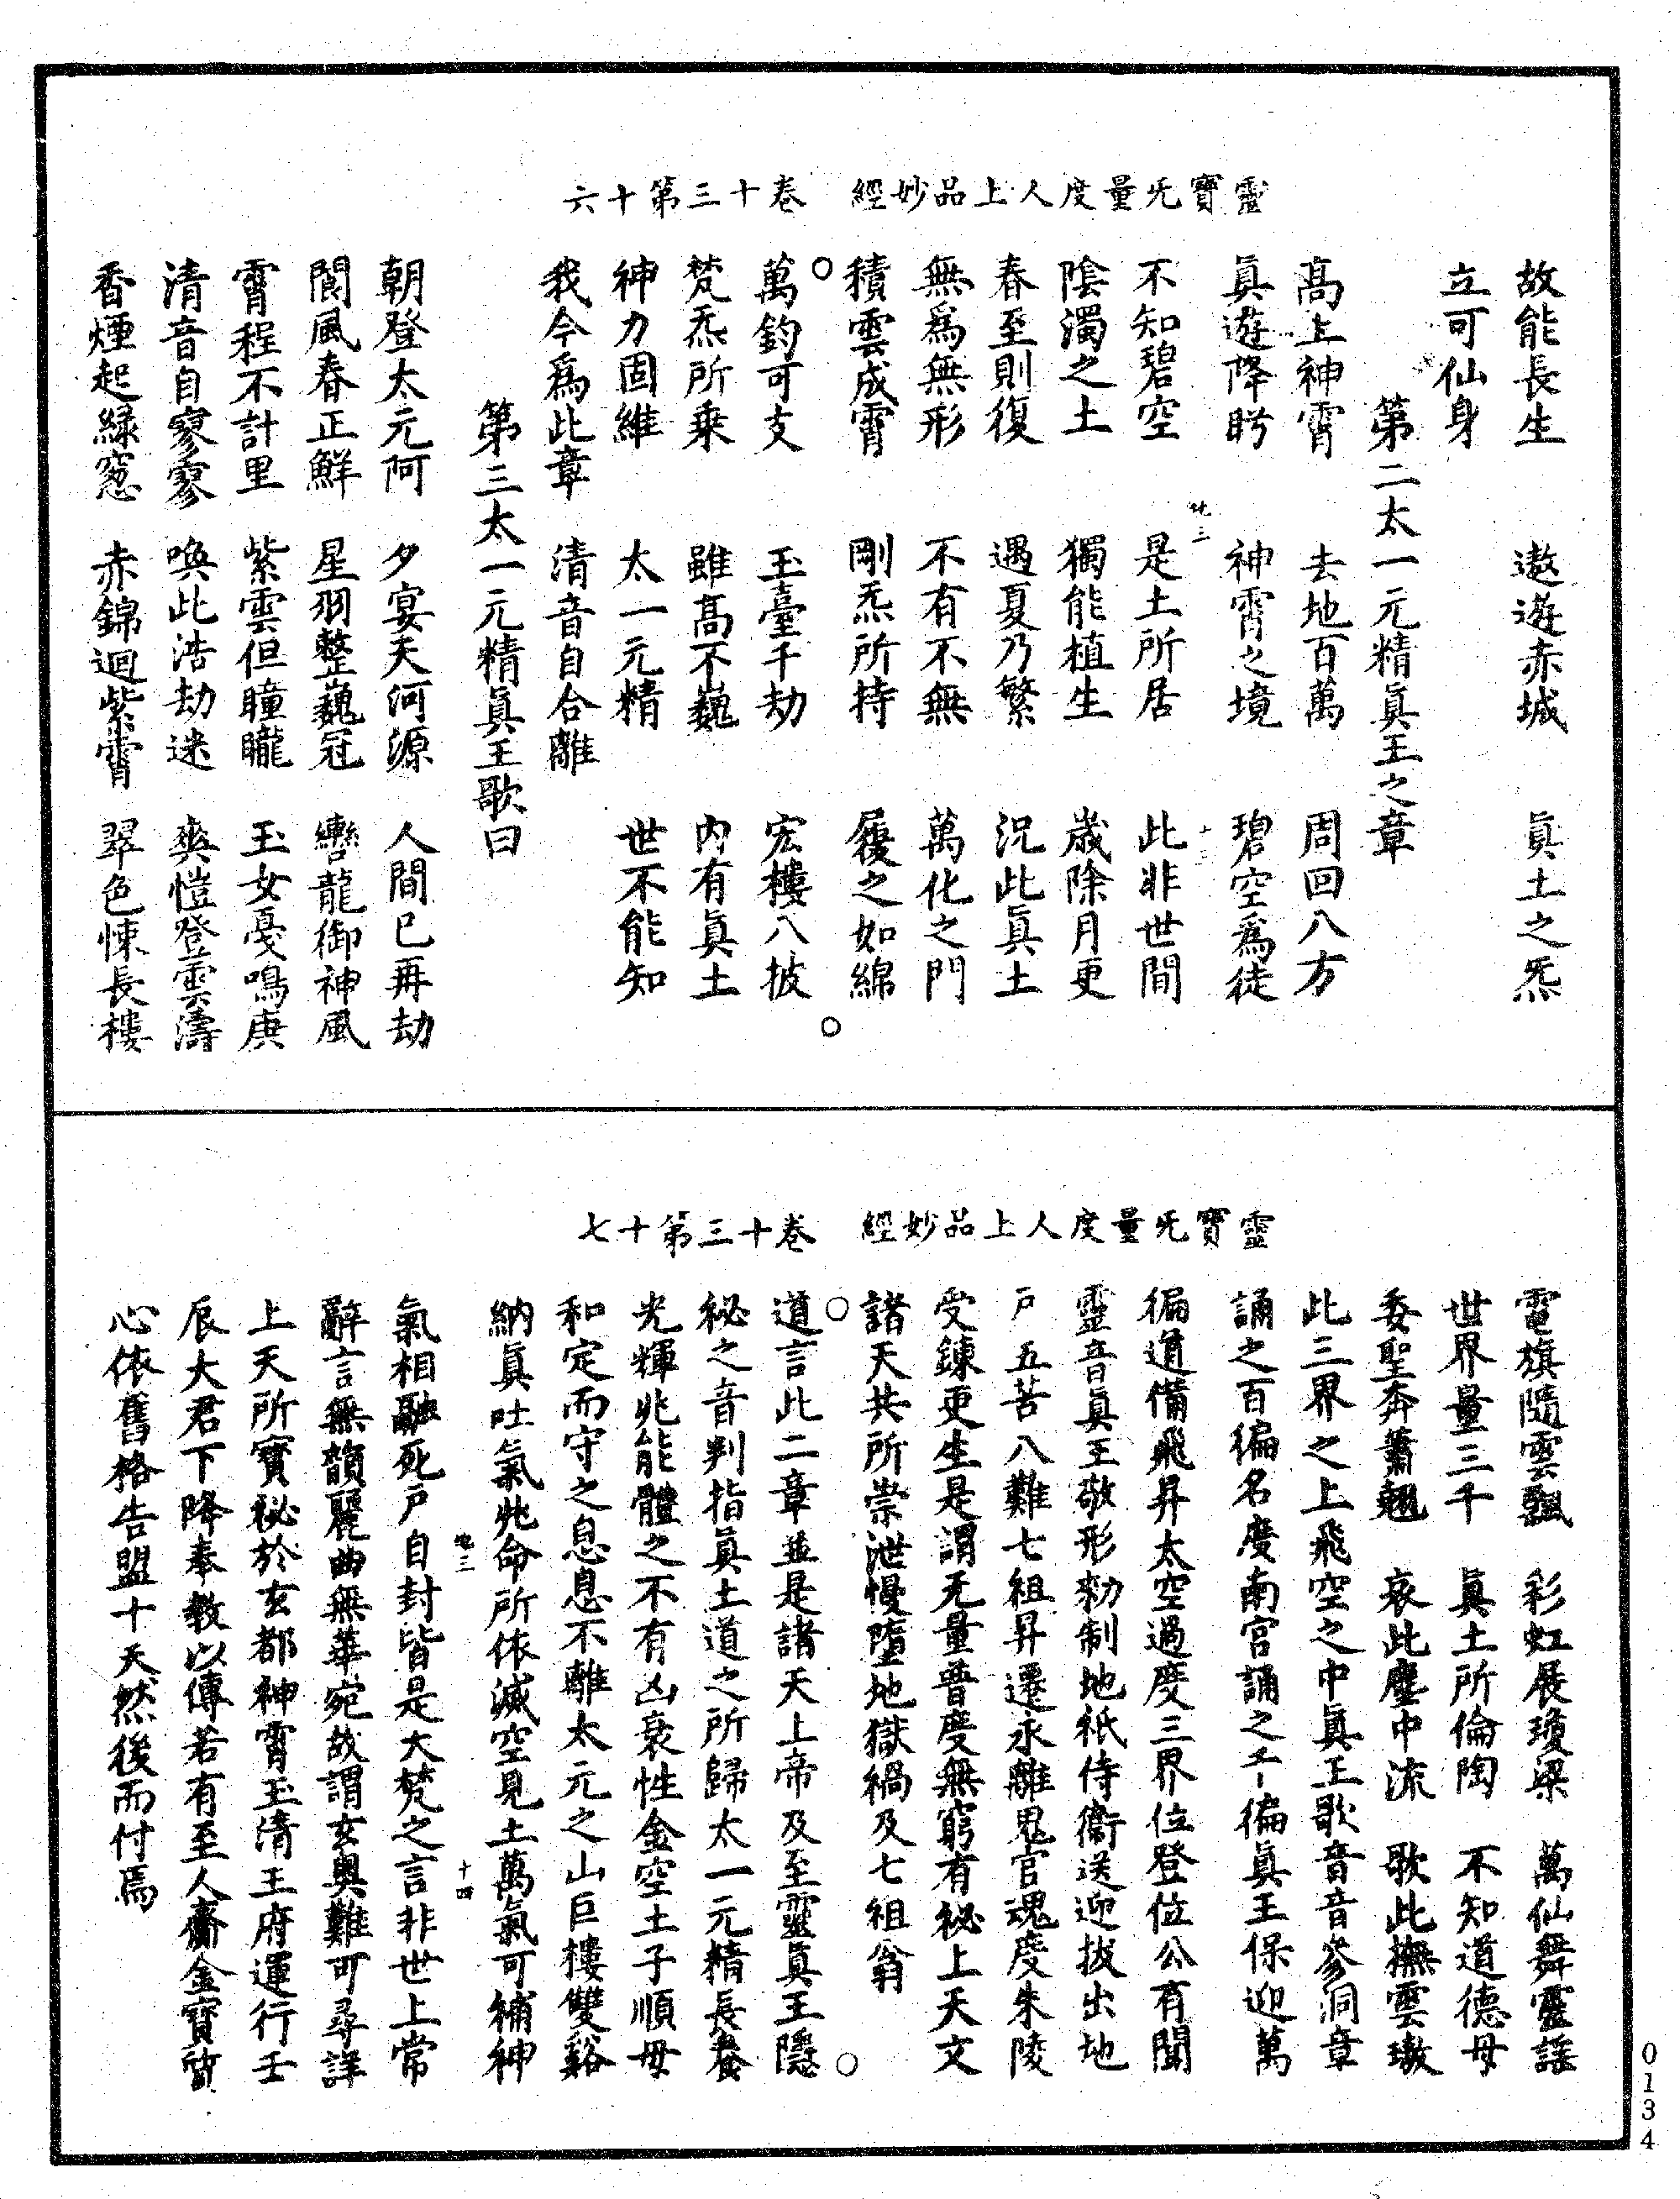 靈寶无量度人上品妙經　卷三十第十六
故能長生　遨遊赤城　眞土之炁
立可仙身
第二太一元精眞王之章
高上神霄　去地百萬　周回八方
眞遊降盻　神霄之境　碧空爲徒
不知碧空　是土所居　此非世間
陰濁之土　獨能植生　歲除月更
春至則復　遇夏乃繁　況此眞土
無爲無形　不有不無　萬化之門
積雲成霄　剛炁所持　履之如綿
萬鈞可支　玉臺千劫　宏樓八披
梵炁所乗　雖高不巍　内有眞土
神力固維　太一元精　世不能知
我今爲此章　清音自合離
第三太一元精眞王歌曰
朝登太元阿　夕宴天河源　人間已再劫
閬風春正鮮　星羽整巍冠　轡龍御神風
霄程不計里　紫雲但曈曨　玉女戞鳴庚
清音自寥寥　喚此浩劫迷　爽愷登雲濤
香煙起緑窓　赤錦迴紫霄　翠色悚長樓
靈寶无量度人上品妙經　卷三十第十七
電旗隨雲飄　彩虹展瓊梁　萬仙舞靈謡
世界量三千　眞土所倫陶　不知道德母
委聖奔簫翹　哀此塵中流　歌此撫雲璈
此三界之上飛空之中眞王歌音音參洞章
誦之百徧名度南宫誦之千徧眞王保迎萬
徧道備飛昇太空過度三界位登位公有聞
靈音眞王敬形勑制地祇侍衞送迎拔出地
戸五苦八難七祖昇遷永離鬼官魂度朱陵
受鍊更生是謂无量普度無窮有祕上天文
諸天共所崇泄慢墮地獄禍及七祖翁
道言此二章並是諸天上帝及至靈眞王隱
祕之音判指眞土道之所歸太一元精長養
光輝兆能體之不有凶衰性金空土子順母
和定而守之息息不離太元之山巨樓雙谿
納眞吐氣兆命所依滅空見土萬氣可補神
氣相融死戸自封皆是大梵之言非世上常
辭言無韻麗曲無華宛故謂玄奥難可尋詳
上天所寶祕於玄都神霄玉清王府運行壬
辰大君下降奉教以傳若有至人齎金寶質
心依舊格告盟十天然後而付焉
0134